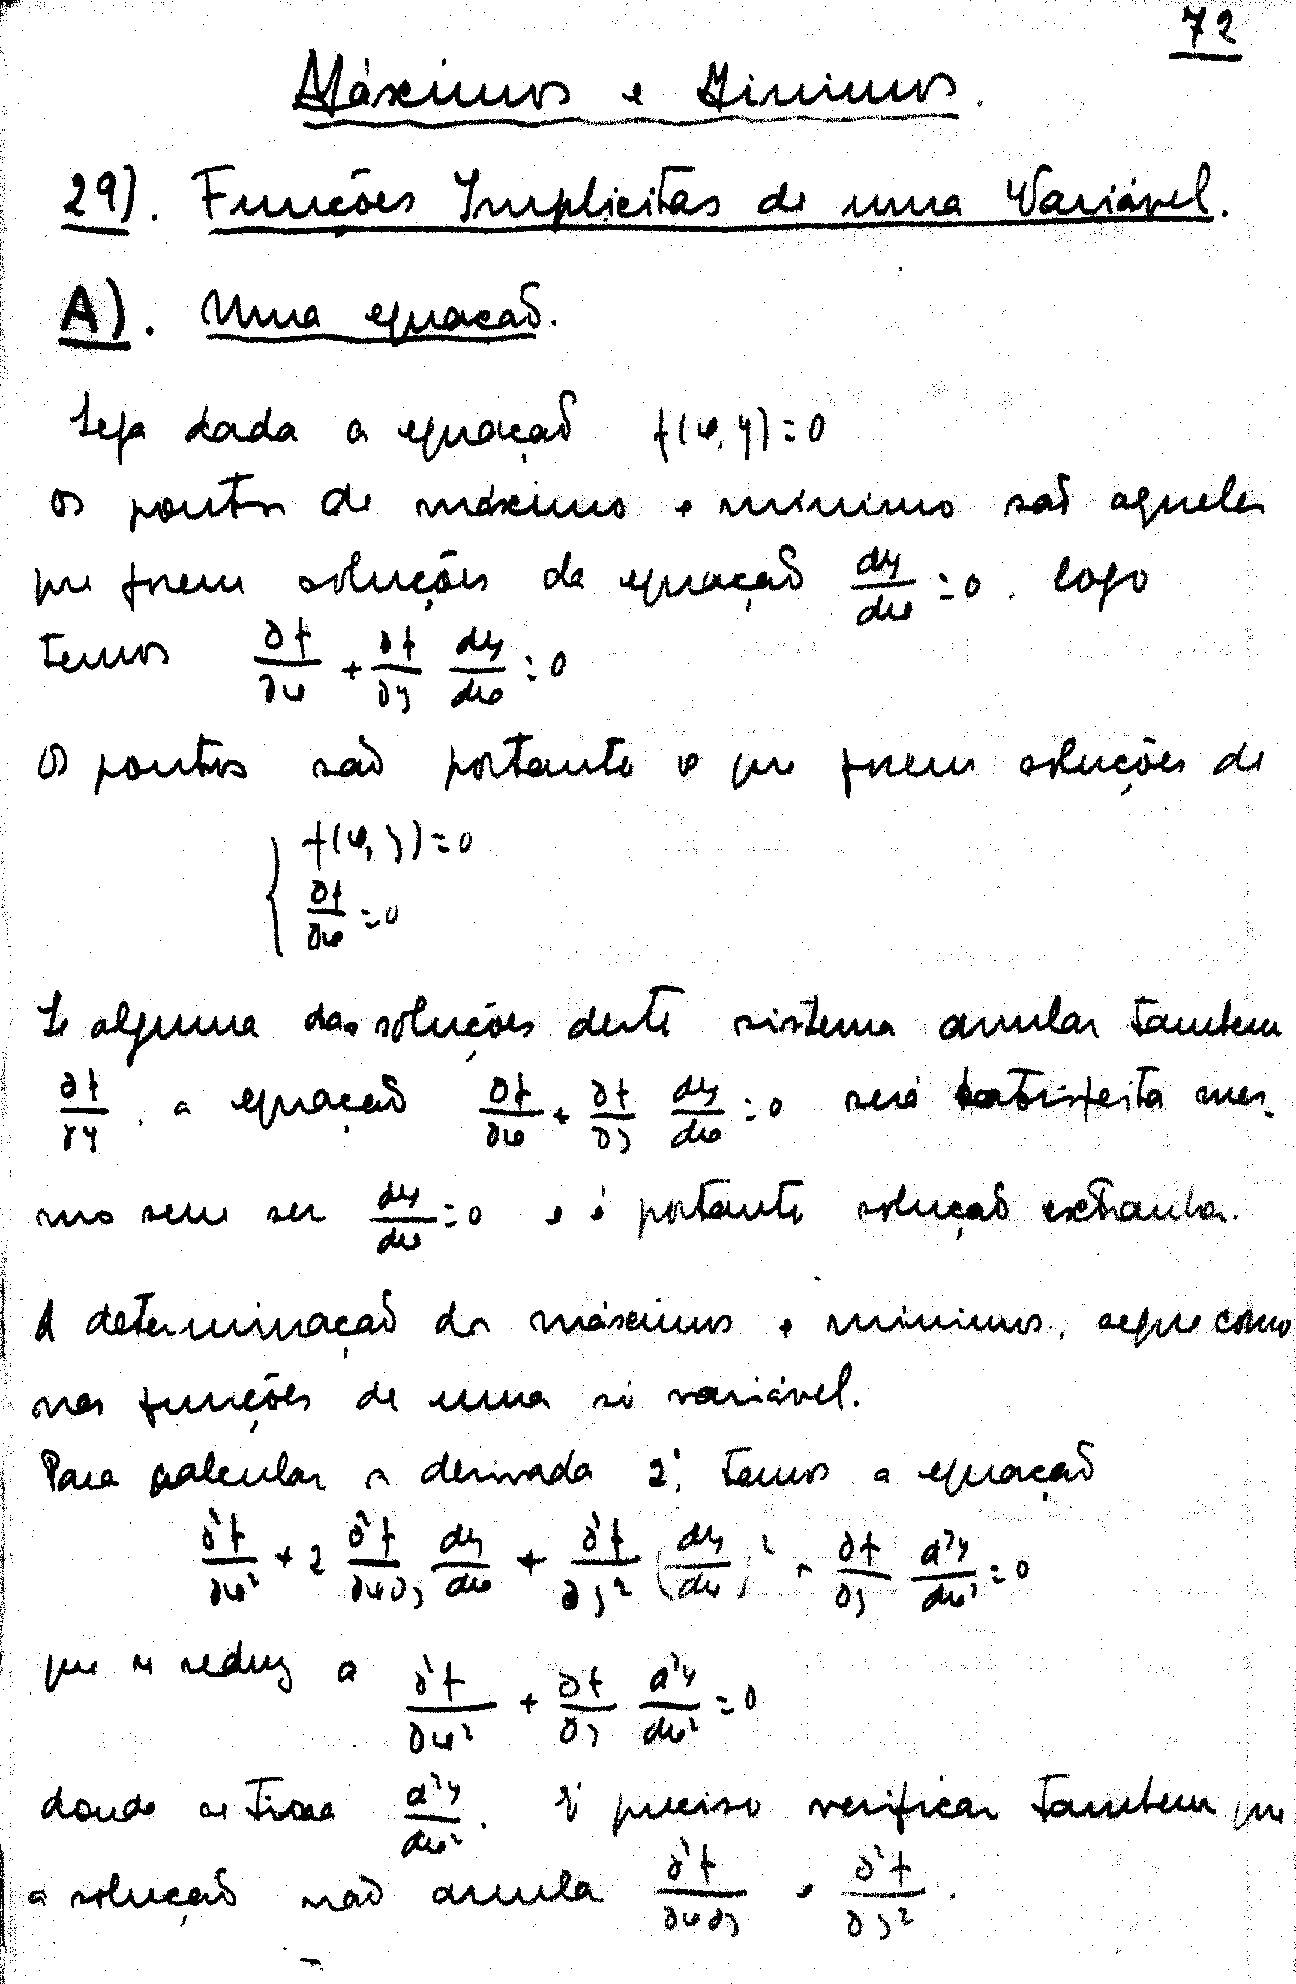 72
Máximos e Minimos.
29). Funções Implicitas de uma Variável.
A). Uma equação.
Seja dada a equação f(x,y)=0
Os pontos de máximo e mínimo são aqueles
que forem soluções da equação dy/dx =0. Logo
temos ∂f/∂x + ∂f/∂y dy/dx =0
Os pontos são portanto o que forem soluções de
{ f(x,y)=0
∂f/∂x =0
Se alguma das soluções deste sistema anular tambem
∂f/∂y, a equação ∂f/∂x + ∂f/∂y dy/dx =0 será satisfeita mes-
mo sem ser dy/dx =0 e é portanto solução extranha.
A determinação dos máximos e mínimos, segue como
nas funções de uma só variável.
Para calcular a derivada 2ª, temos a equação
∂²f/∂x² + 2 ∂²f/∂x∂y dy/dx + ∂²f/∂y² (dy/dx)² + ∂f/∂y d²y/dx² =0
que se reduz a ∂²f/∂x² + ∂f/∂y d²y/dx² =0
donde se tira d²y/dx². É preciso verificar tambem que
a solução não anula ∂²f/∂x∂y e ∂²f/∂y².